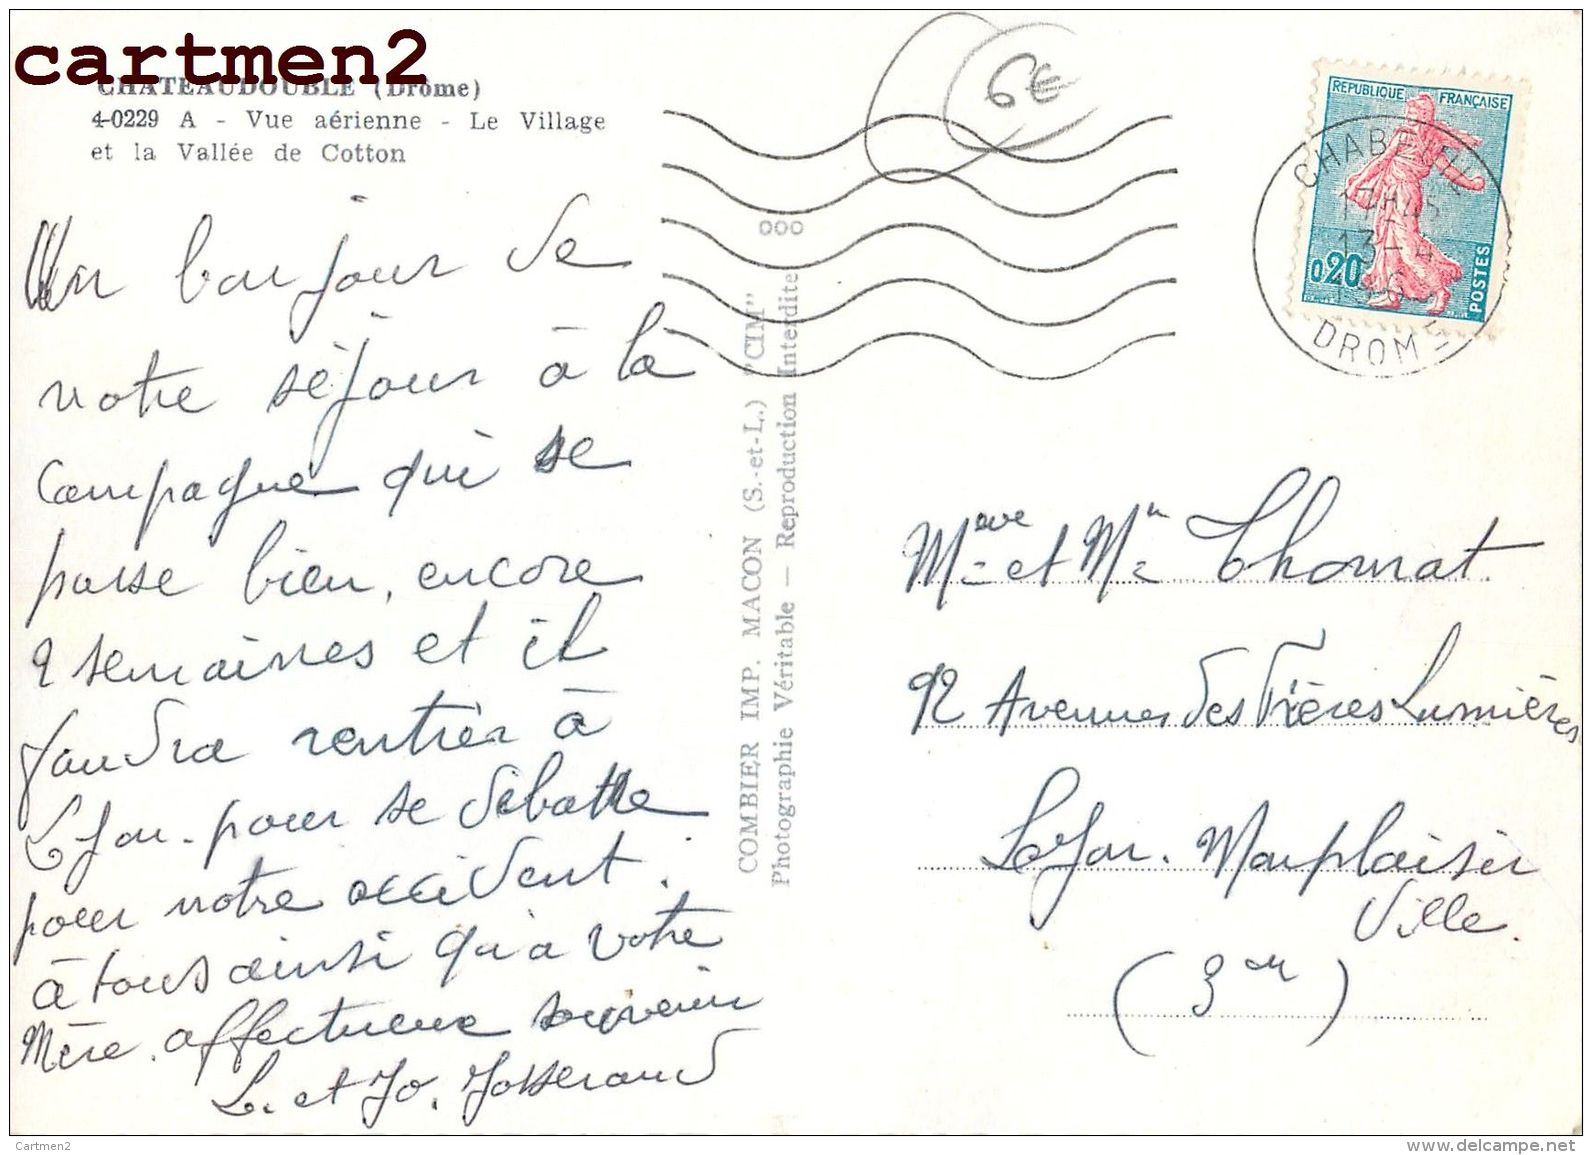 cartmen2
CHATEAUDOUBLE (Drôme)
4-0229 A - Vue aérienne - Le Village
et la Vallée de Cotton
Un bonjour de
notre séjour à la
campagne qui se
passe bien, encore
2 semaines et il
faudra rentrer à
Lyon. pour se débattre
pour notre accident.
à tous ainsi qu'a votre
Mère. affectueux souvenir
L. et Jo. Josserand
COMBIER IMP. MACON (S.-et-L.) "CIM"
Photographie Véritable — Reproduction Interdite
6€
REPUBLIQUE FRANÇAISE
0,20
POSTES
17H45
13-4
DROME
Mme et Mr Thomat.
92 Avenue des Frères Lumières
Lyon. Monplaisir
Ville.
(3em)
Cartmen2
www.delcampe.net